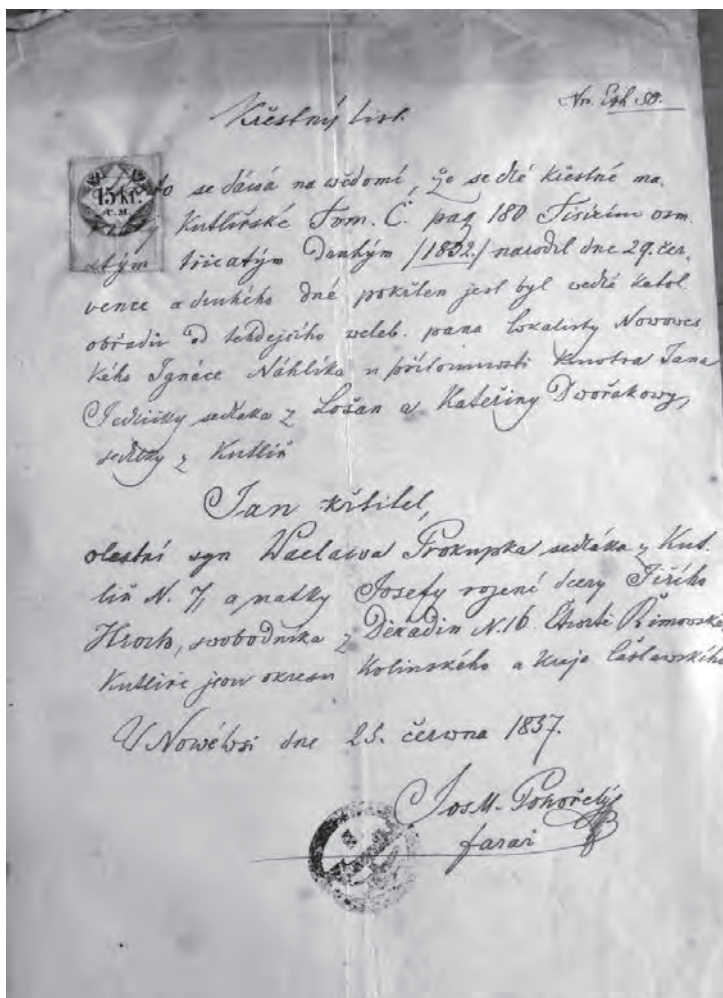 Nro. Exh. 58.
Křestný list.
15 kr.
C.M.
se dává na wědomí, že se dlé křestné ma.
Kutlířské Tom. C. pag 180 Tisícím osm
stým třicatým Danhým /1832./ narodil dne 29. čer.
vence a druhého dné pokřtěn jest byl wedlé katol
obřadu od tehdejšího weleb. pana lokalisty Nowowes
kého Ignáce Náhlíka u přítomnosti kmotra Jana
Jedličky sedláka z Lošan a Kateřiny Dwořákowy,
sedlky z Kutliř
Jan křtitel,
syn Waclawa Prokupka sedláka z Kut.
liř N. 7, a matky Josefy rozené dcery Jiřího
Hroch, swobodníka z N. 16 Čtwrtě Římowské
Kutlíře jsou okresu Kolínského a Kraje Čáslawského
W Nowéwsi dne 25. června 1857.
Jos. M. Pohořelý
farář